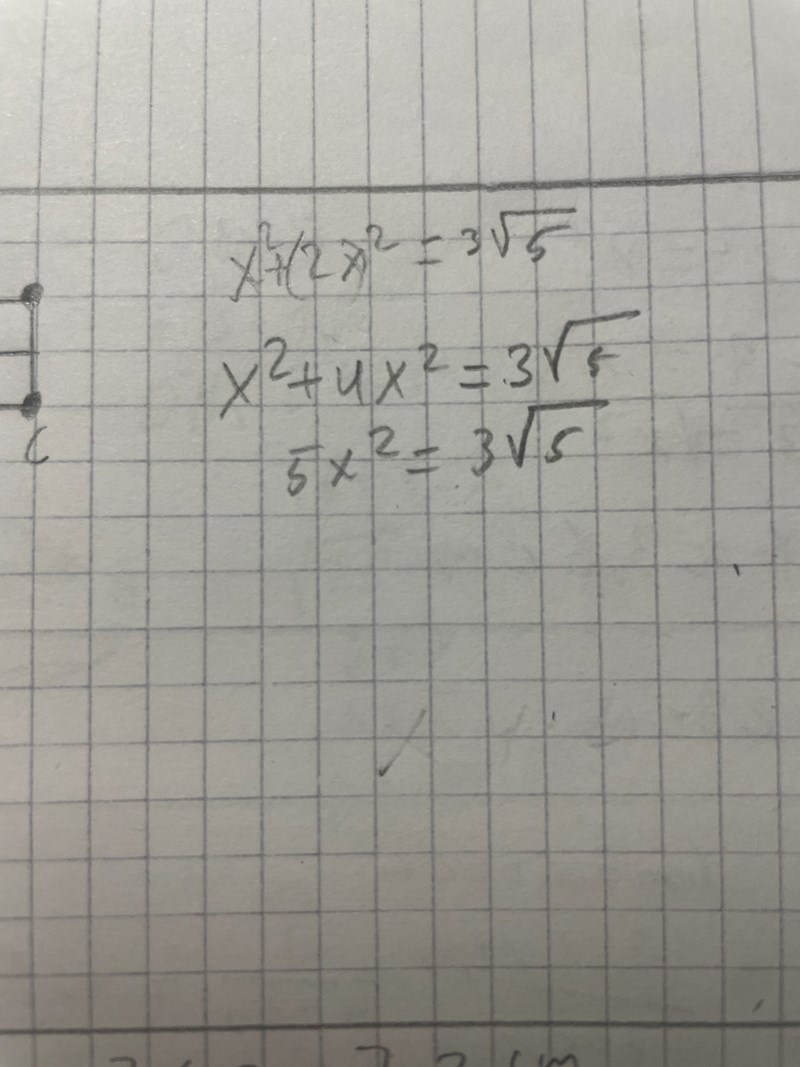 x²+(2x)² = 3√5
x²+4x² = 3√5
5x² = 3√5
C